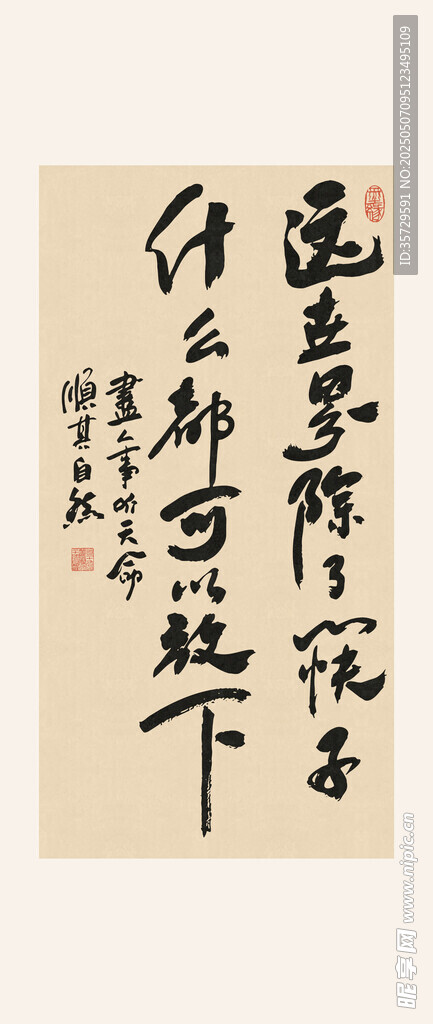 这世界除了筷子
什么都可以放下
盡人事听天命
順其自然
ID:35729591 NO:20250507095123495109
昵享网 www.nipic.cn